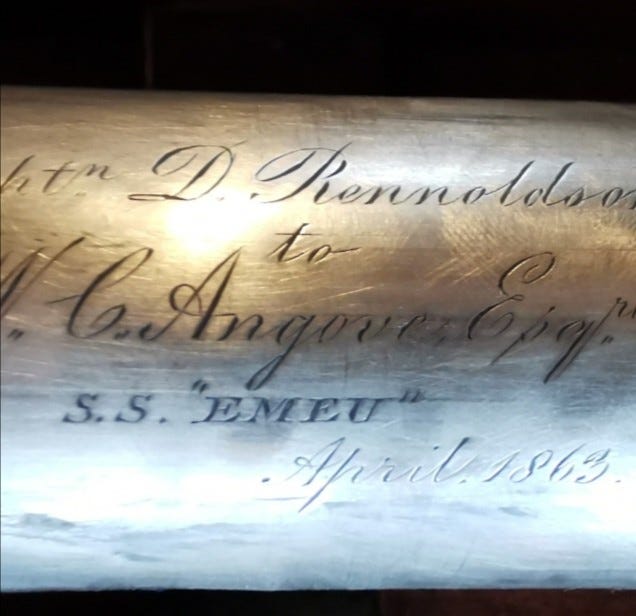 ptn D. Rennoldson
to
W. C. Angove, Esqre.
S.S. "EMEU"
April. 1863.